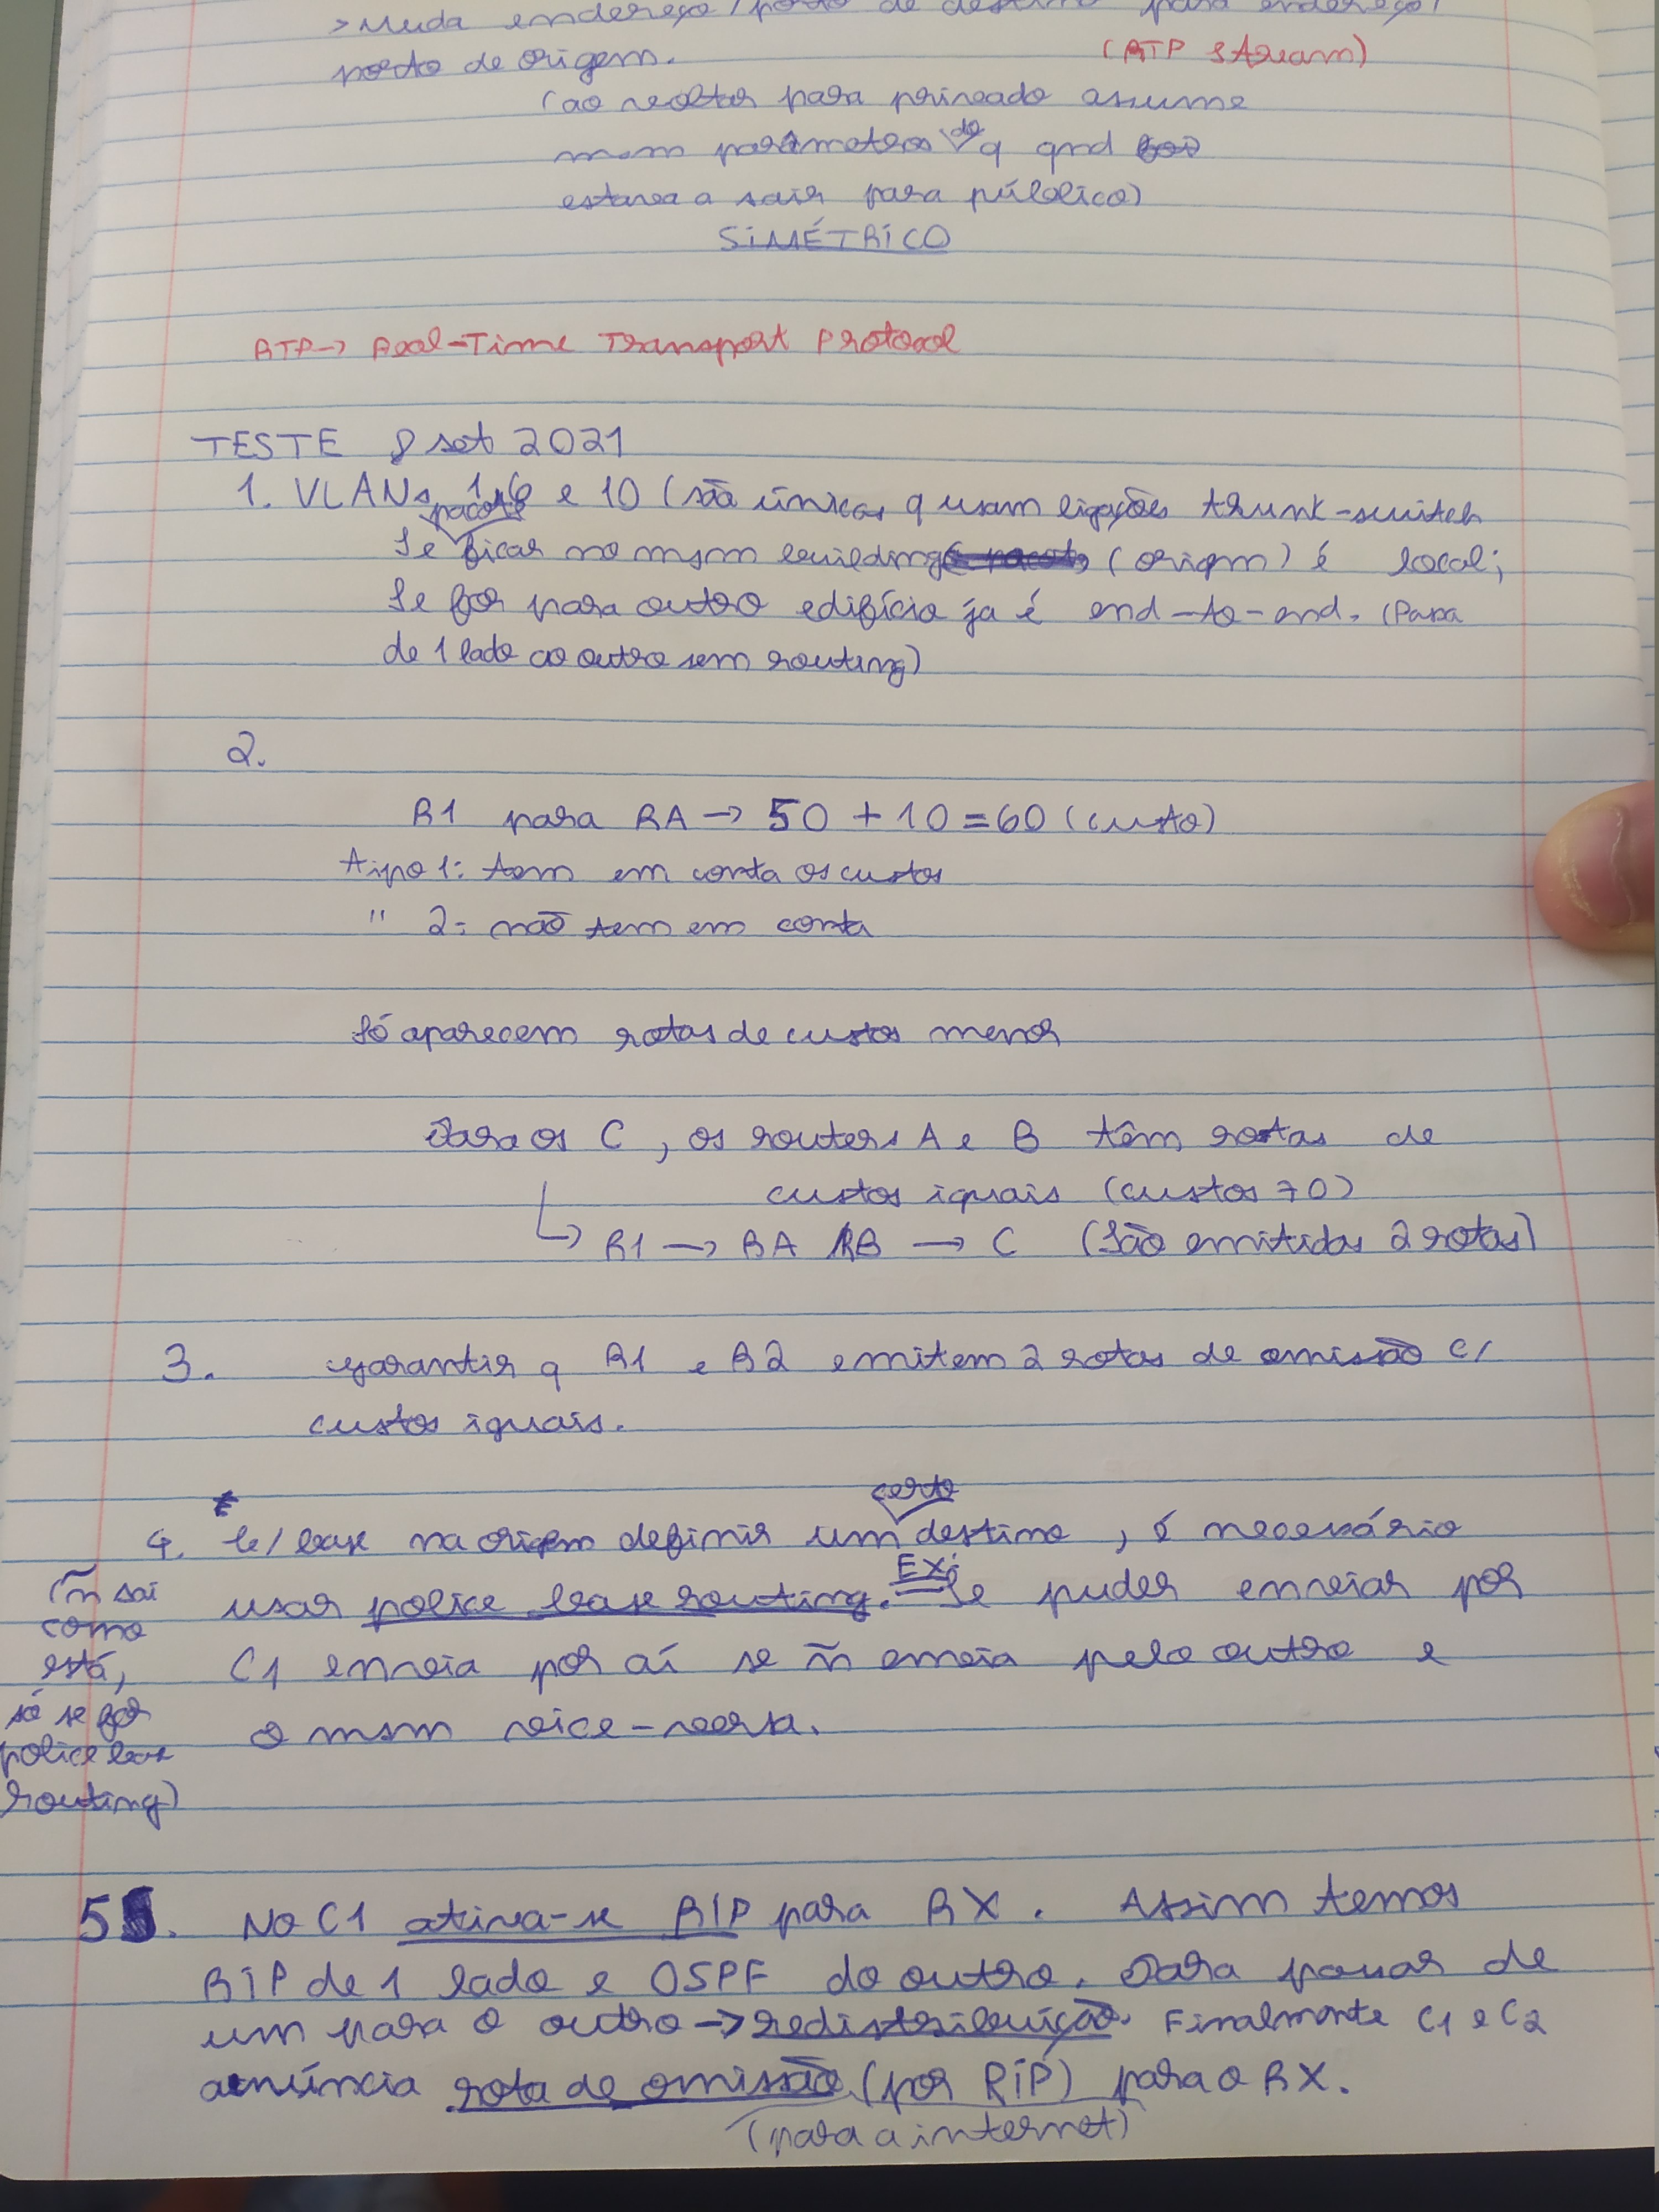 > Muda endereço/porto de destino para endereço/
porto de origem. (RTP stream)
(ao voltar para privado assume
msm parâmetros do q qnd foi
estava a sair para público)
SIMÉTRICO
RTP → Real-Time Transport Protocol
TESTE 8 set 2021
1. VLANs 1, 6 e 10 (são únicas q usam ligações trunk-switch
pacote
Se ficar no msm building (origem) é local;
Se for para outro edifício já é end-to-end. (Passa
de 1 lado ao outro sem routing)
2.
R1 para RA → 50 + 10 = 60 (custo)
tipo 1: tem em conta os custos
" 2: não tem em conta
Só aparecem rotas de custos menor
Para os C, os routers A e B têm rotas de
custos iguais (custos 70)
↳ R1 → RA / RB → C (São emitidas 2 rotas)
3. garantir q R1 e R2 emitem 2 rotas de omissão c/
custos iguais.
certo
4. c/ base na origem definir um destino, é necessário
usar police base routing. EX: Se puder enviar por
C1 envia por aí se ñ envia pelo outro e
o msm vice-versa.
(ñ sai
como
está,
só se for
police base
routing)
5. No C1 ativa-se RIP para RX. Assim temos
RIP de 1 lado e OSPF do outro. Para passar de
um para o outro → redistribuição. Finalmente C1 e C2
anúncia rota de omissão (por RIP) para o RX.
(para a internet)